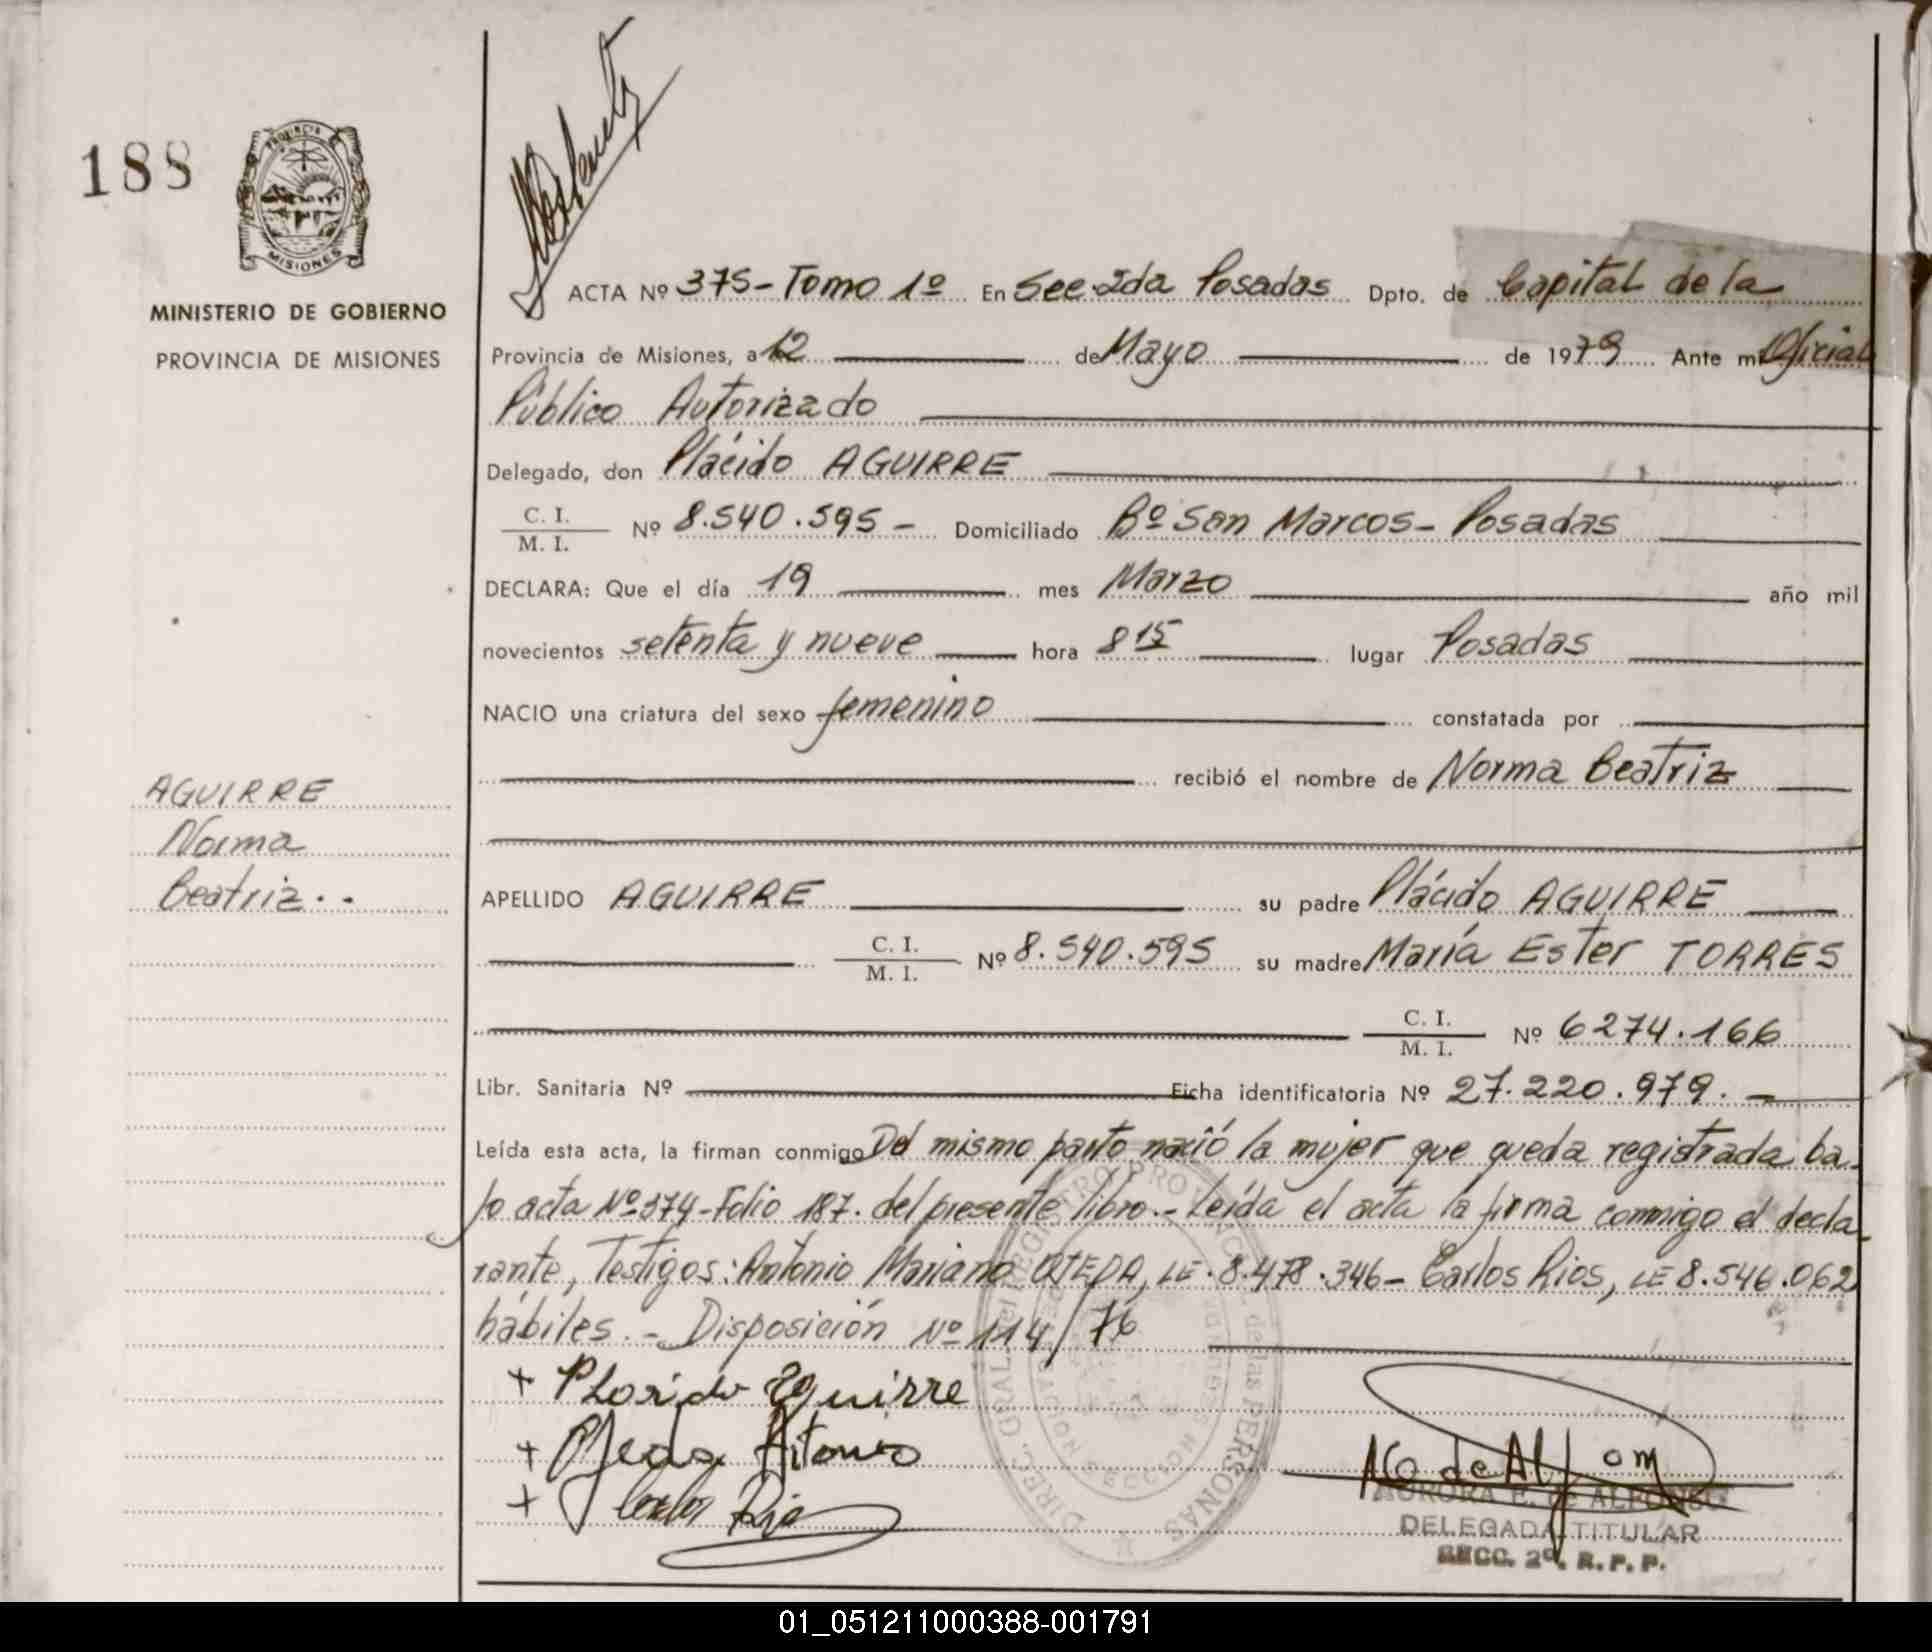 188
PROVINCIA
MISIONES
MINISTERIO DE GOBIERNO
PROVINCIA DE MISIONES
ACTA Nº 375 - Tomo 1º En Sec 2da Posadas Dpto. de Capital de la
Provincia de Misiones, a 12 de Mayo de 1979 Ante mi Oficial
Público Autorizado
Delegado, don Plácido AGUIRRE
C. I.
M. I. Nº 8.540.595 - Domiciliado Bº San Marcos - Posadas
DECLARA: Que el día 19 mes Marzo año mil
novecientos setenta y nueve hora 8 15 lugar Posadas
NACIO una criatura del sexo femenino constatada por
recibió el nombre de Norma Beatriz
AGUIRRE
Norma
Beatriz..
APELLIDO AGUIRRE su padre Plácido AGUIRRE
C. I.
M. I. Nº 8.540.595 su madre María Ester TORRES
C. I.
M. I. Nº 6274.166
Libr. Sanitaria Nº Ficha identificatoria Nº 27.220.979. -
Leída esta acta, la firman conmigo Del mismo parto nació la mujer que queda registrada ba-
jo acta Nº 374 - Folio 187. del presente libro. - Leída el acta la firma conmigo el decla-
rante, Testigos: Antonio Mariano OJEDA, LE. 8.478.346 - Carlos Rios, LE 8.546.062
hábiles. - Disposición Nº 114/76
+ Plasido Aguirre
+ Ojeda Antonio
+ Carlos Rio
DIREC. GRAL. del REGISTRO PROVINCIAL de las PERSONAS
AURORA E. de ALFONSO
DELEGADA TITULAR
SECC. 2º. R. P. P.
01_051211000388-001791